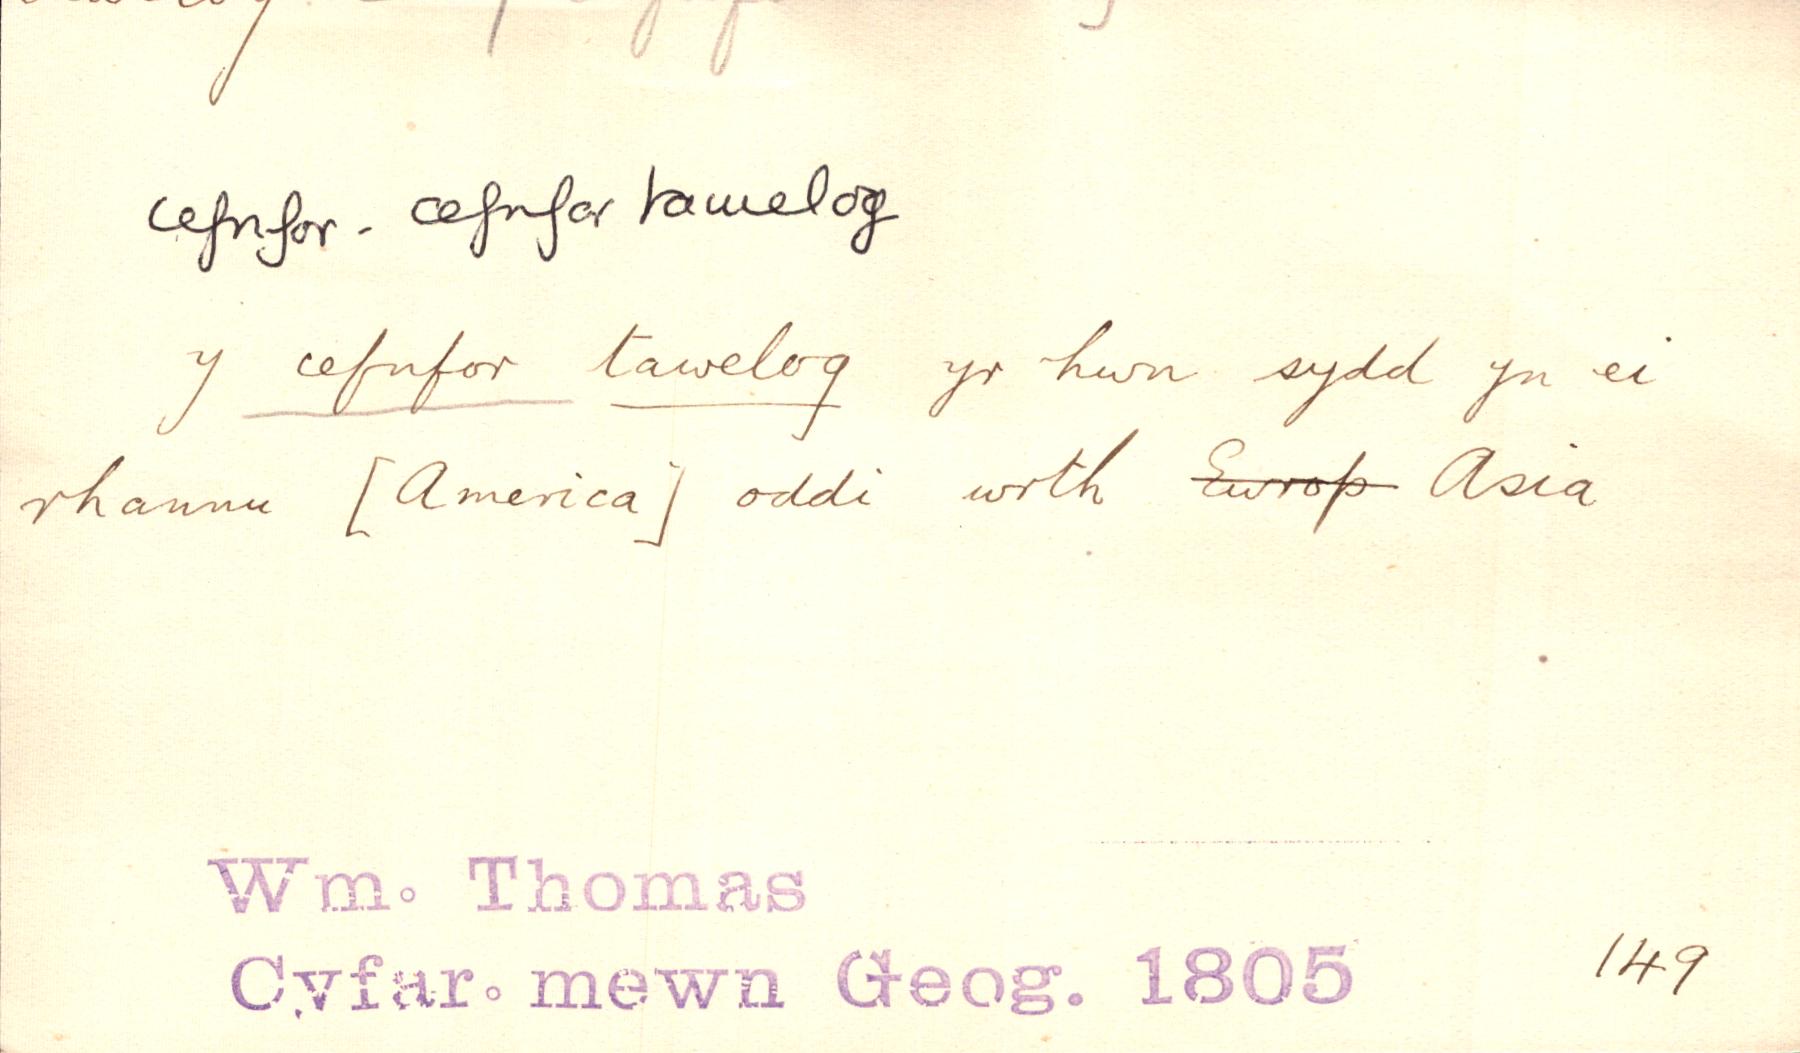 cefnfor - cefnfor tawelog
y cefnfor tawelog yr hwn sydd yn ei
rhannu [America] oddi wrth Ewrop Asia
Wm. Thomas
Cyfar. mewn Geog. 1805
149